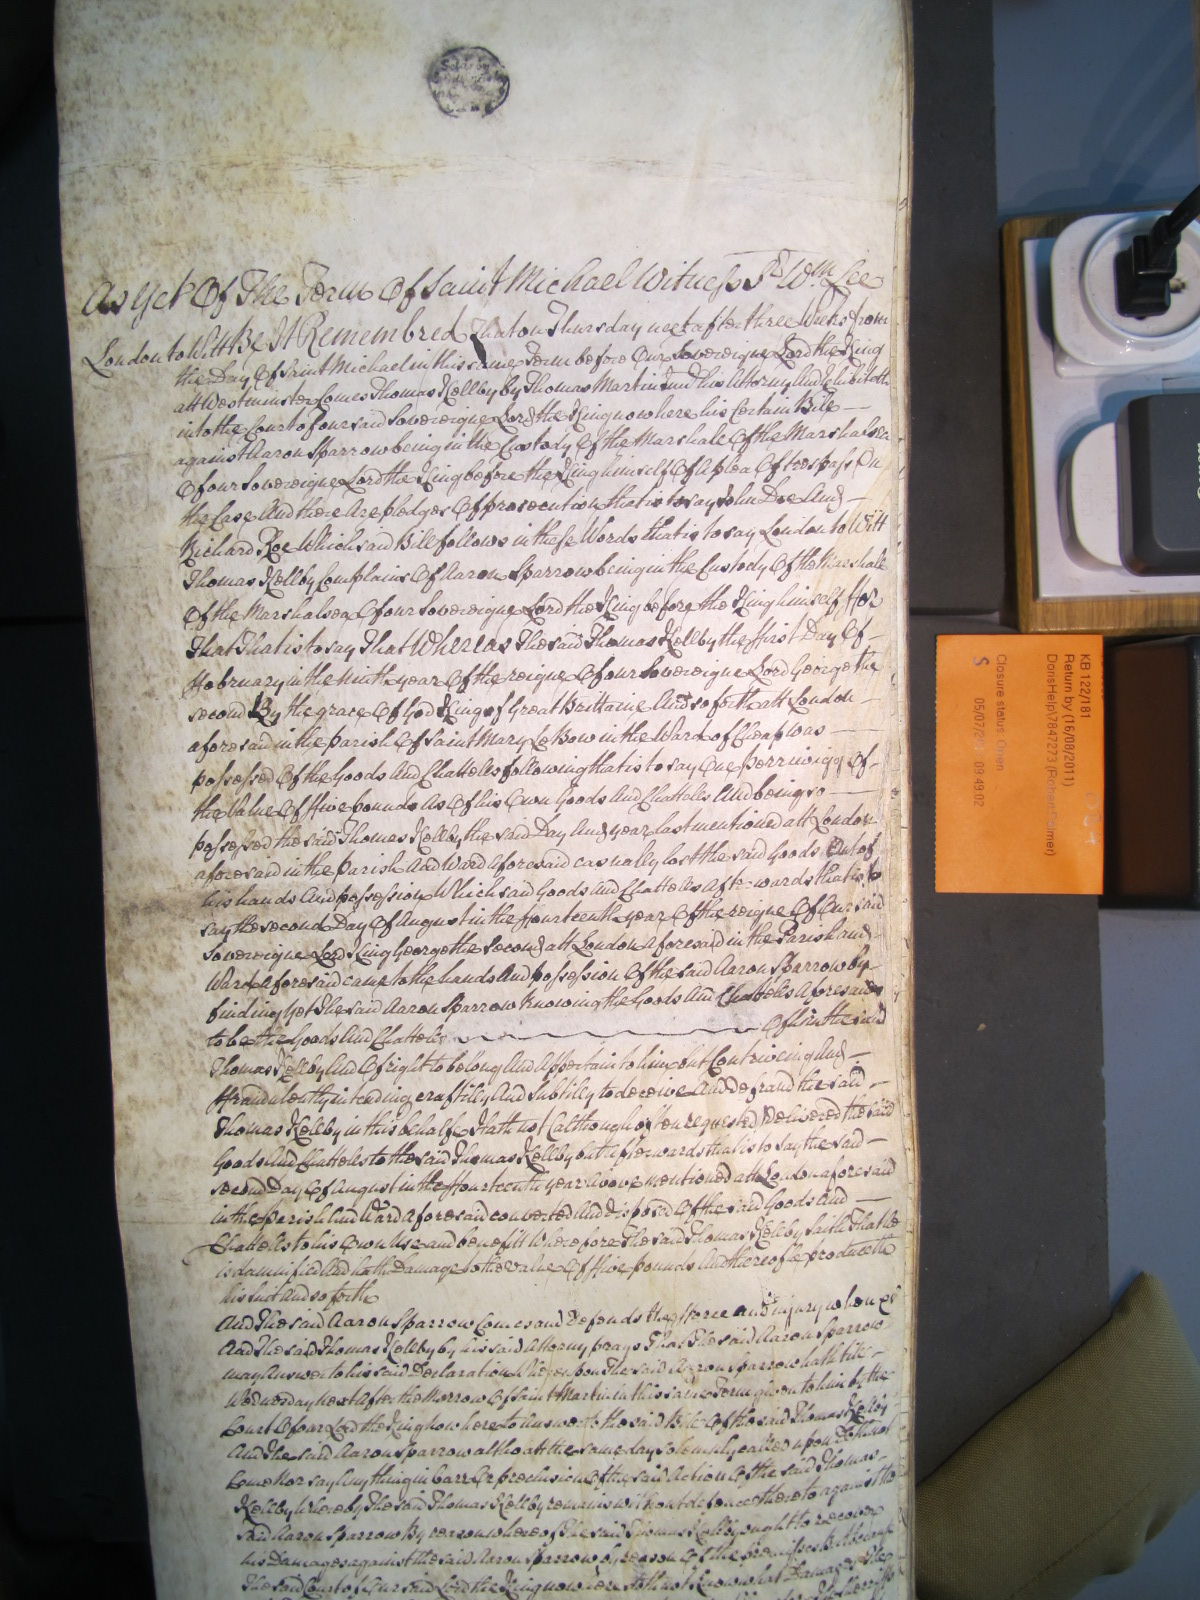 As Yet Of The Term Of Saint Michael Witness Sr Wm Lee
London to Witt Be It Remembred That on Thursday next after three Weeks from
the Day Of Saint Michael in this same Term before Our Sovereigne Lord the King
att Westminster Comes Thomas Kelby by Thomas Martin his Attorny And
into the Court of our said Sovereigne Lord the King now here his Certain Bill
against Aaron Sparrow being in the Custody Of the Marshall Of the Marshalsea
Of our Sovereigne Lord the King before the King himself Of A plea Of trespass On
the Case And there Are pledges Of prosecution that is to say John Doe And
Richard Roe Which said Bill follows in these Words that is to say London to Witt
Thomas Kelby Complains Of Aaron Sparrow being in the Custody Of the Marshall
Of the Marshalsea Of our Sovereigne Lord the King before the King himself For
That That is to say That Whereas The said Thomas Kelby the first Day Of
ffebruary in the ninth year Of the reigne Of our Sovereigne Lord George the
second By the grace Of God King of Great Brittaine And so forth att London
aforesaid in the parish Of Saint Mary Le Bow in the Ward of Cheap was
possessed Of the Goods And Chattells following that is to say One perriwigg Of
the Value Of ffive pounds As Of his Own Goods And Chattells And being so
possessed the said Thomas Kelby the said Day And year last mentioned att London
aforesaid in the parish And Ward Aforesaid casually lost the said Goods Out of
his hands And possession Which said Goods And Chattells Afterwards that is to
say the second Day Of August in the ffourteenth year Of the reigne Of Our said
Sovereigne Lord King George the Second att London Aforesaid in the Parish and
Ward Aforesaid came to the hands And possession Of the said Aaron Sparrow by
finding Yet The said Aaron Sparrow Knowing the Goods And Chattells Aforesaid
to be the Goods And Chattells Of him the said
Thomas Kelby And Of right to belong And Appertain to him but Contriveing And
ffraudulently intending craftilly And Subtilly to deceive And defraud the said
Thomas Kelby in this behalf Hath not (although often requested) Delivered the said
Goods And Chattells to the said Thomas Kelby but Afterwards that is to say the said
second Day Of August in the ffourteenth year Above mentioned att London aforesaid
in the parish And Ward Aforesaid converted And Disposed Of the said Goods And
Chattells to his Own Use and benefitt Wherefore The said Thomas Kelby saith That he
is damnified And hath Damage to the value Of ffive pounds And thereof he produceth
his suit And so forth
And The said Aaron Sparrow Comes and Defends the fforce and injury when &c
And The said Thomas Kelby by his said Attorny prays That The said Aaron Sparrow
may Answer to his said Declaration Whereupon The said Aaron Sparrow hath till
Wednesday next After the Morrow Of Saint Martin in this same Term given to him by the
Court Of our Lord the King now here to Answer to the said Bill Of the said Thomas Kelby
And The said Aaron Sparrow altho att the same day solemnly called upon Doth not
Come Nor say Anything in barr Or preclusion Of the said Action Of the said Thomas
Kelby Whereby The said Thomas Kelby remains without defence thereto against the
said Aaron Sparrow By reason whereof The said Thomas Kelby ought to recover
his Damages against the said Aaron Sparrow by reason Of the premisses But because
The said Court of Our said Lord the King now here doth not know what Damages The
KB 122/181
Return by (16/08/2011)
Closure status: Open
S 09:49:02